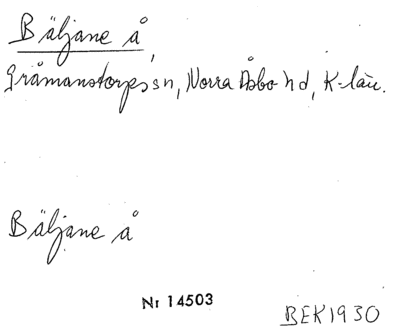 Bäljane å,
Gråmanstorps sn, Norra Åsbo hd, K-län.
Bäljane å
Nr 14503
BEK 1930